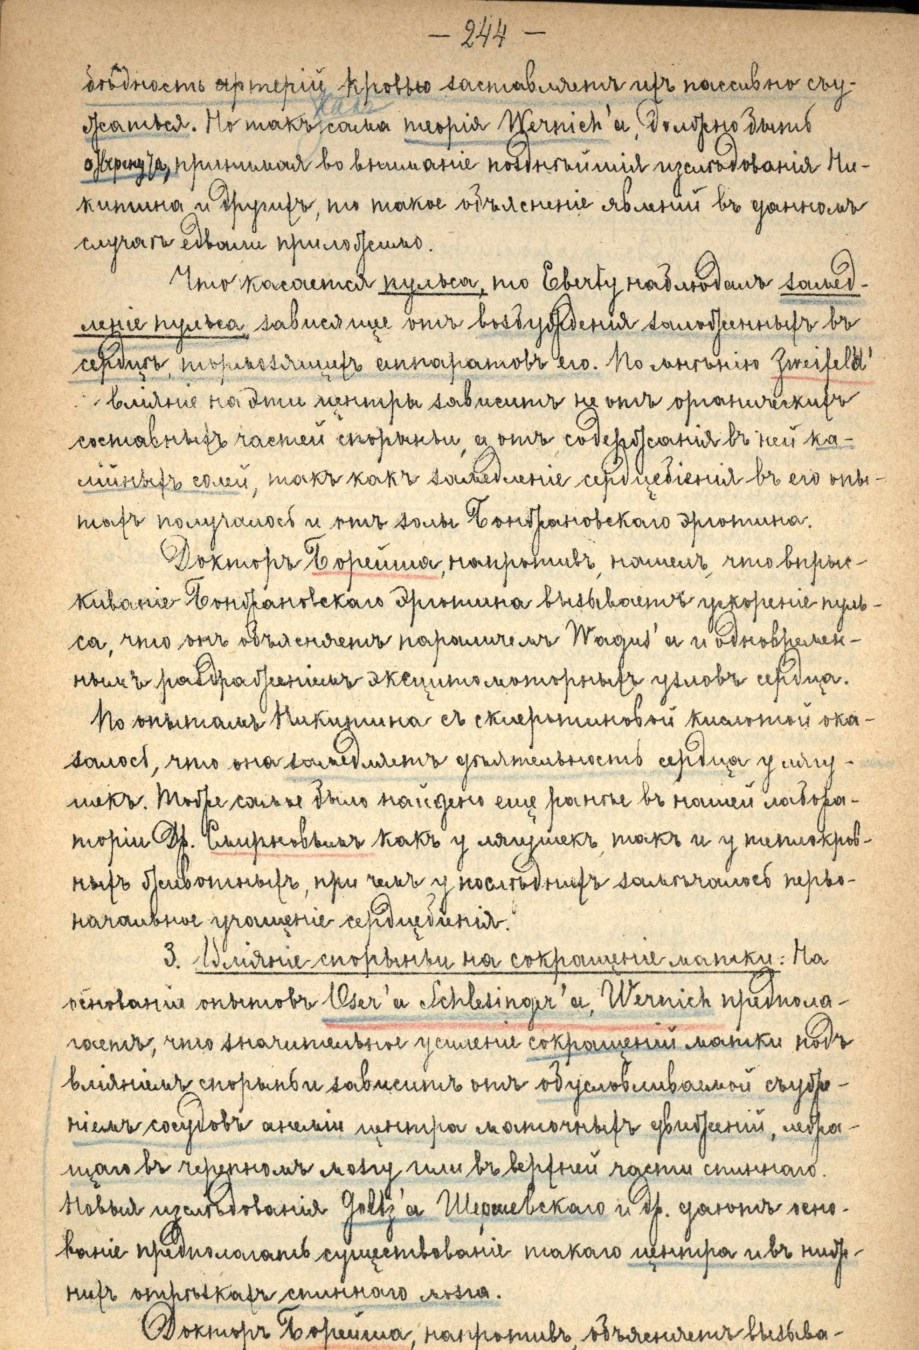 — 244 —
бѣдность артерій кровью заставляетъ ихъ пассивно съу-
жаться. Но такъ какъ сама теорія Wernich'а, должно быть
отвергнута, принимая во вниманіе позднѣйшія изслѣдованія Ни-
китина и другихъ, то такое объясненіе явленій въ данномъ
случаѣ едвали приложимо.
Что касается пульса, то Eberty наблюдалъ замед-
леніе пульса, зависящее отъ возбужденія заложенныхъ въ
сердцѣ, тормозящихъ аппаратовъ его. По мнѣнію Zweifel'я
вліяніе на эти центры зависитъ не отъ органическихъ
составныхъ частей спорыньи, а отъ содержанія въ ней ка-
лійныхъ солей, такъ какъ замедленіе сердцебіенія въ его опы-
тахъ получалось и отъ золы Бонжановскаго эрготина.
Докторъ Борейша, напротивъ, нашелъ, что впрыс-
киваніе Бонжановскаго Эрготина вызываетъ ускореніе пуль-
са, что онъ объясняетъ параличемъ Wagus'а и одновремен-
нымъ раздраженіемъ эксцитомоторныхъ узловъ сердца.
По опытамъ Никитина съ склеротиновой кислотой ока-
залось, что она замедляетъ дѣятельность сердца у лягу-
шекъ. Тоже самое было найдено еще ранѣе въ нашей лабора-
торіи Др. Смирновымъ какъ у лягушекъ, такъ и у теплокров-
ныхъ животныхъ, при чемъ у послѣднихъ замѣчалось перво-
начальное учащеніе сердцебіенія.
3. Вліяніе спорыньи на сокращеніе матки. На
основаніи опытовъ Oser'а Schlesinger'а, Wernich предпола-
гаетъ, что значительное усиленіе сокращеній матки подъ
вліяніемъ спорыньи зависитъ отъ обусловливаемой съуже-
ніемъ сосудовъ анеміи центра маточныхъ движеній, лежа-
щаго въ черепномъ мозгу или въ верхней части спиннаго.
Новыя изслѣдованія Goltz'а Шершевскаго и др. даютъ осно-
ваніе предполагать существованіе такого центра и въ ниж-
нихъ отрѣзкахъ спиннаго мозга.
Докторъ Борейша, напротивъ, объясняетъ вызыва-